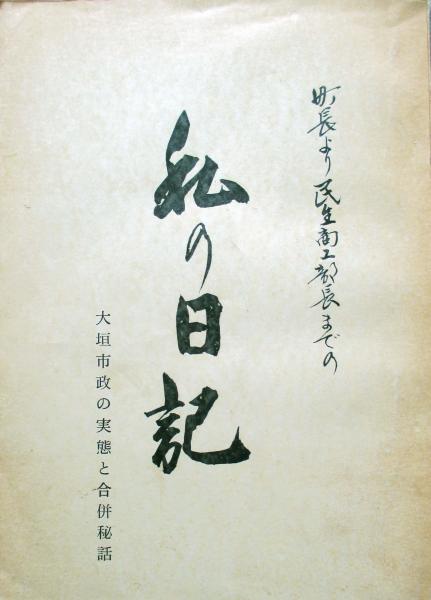 町長より民生商工部長までの
私の日記
大垣市政の実態と合併秘話